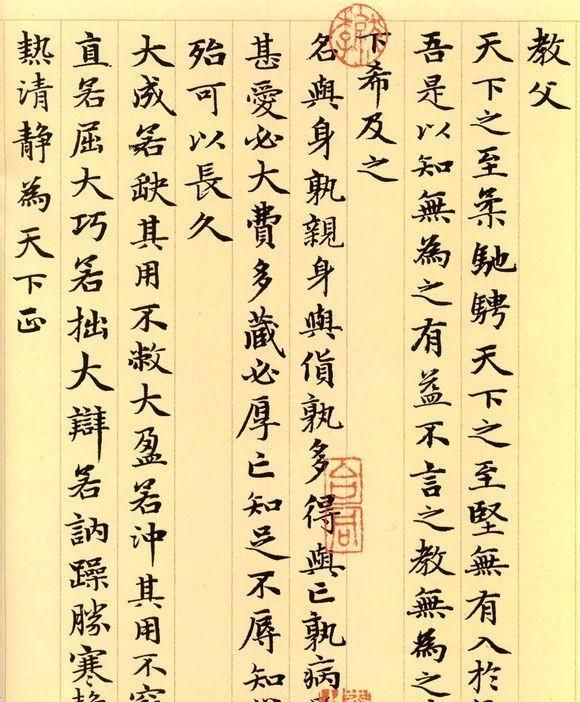 教父
天下之至柔馳騁天下之至堅無有入於
吾是以知無為之有益不言之教無為之
下希及之
名與身孰親身與貨孰多得與亡孰病
甚愛必大費多藏必厚亡知足不辱知
殆可以長久
大成若缺其用不敝大盈若沖其用不窮
直若屈大巧若拙大辯若訥躁勝寒靜
熱清靜為天下正